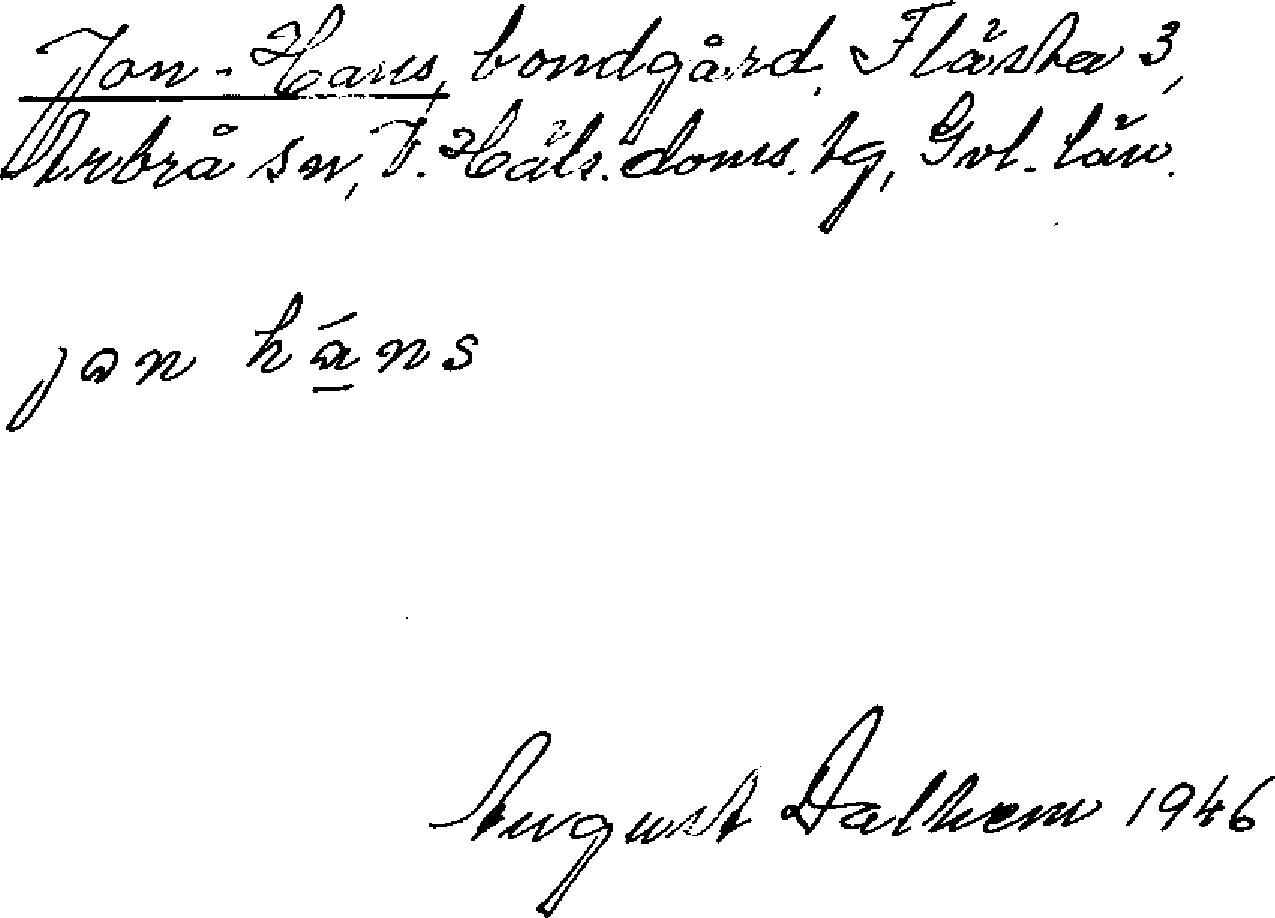 Jon-Hans, bondgård, Flästa 3,
Arbrå sn, V. Häls. doms. tg, Gvl. län.
jon há̲ns
August Dalhem 1946